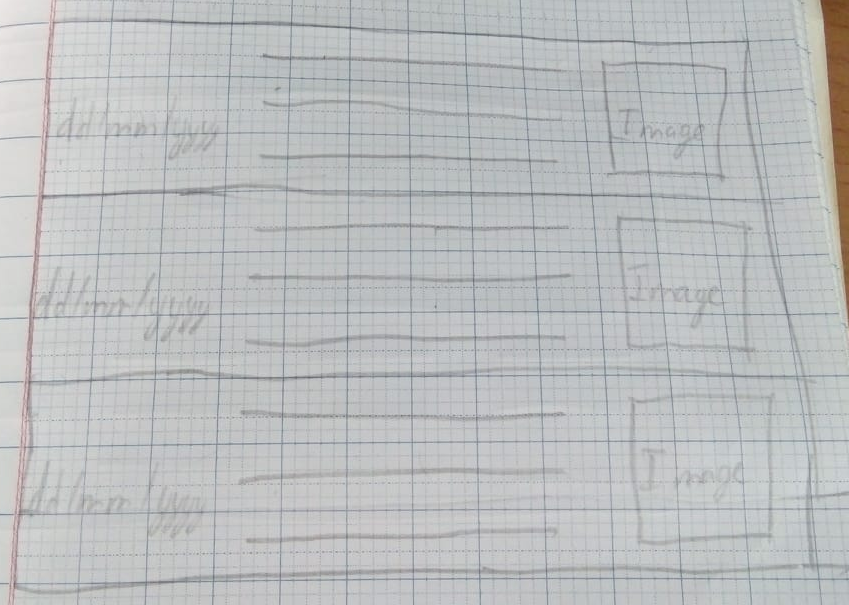 dd/mm/yyyy Image
dd/mm/yyyy Image
dd/mm/yyyy Image